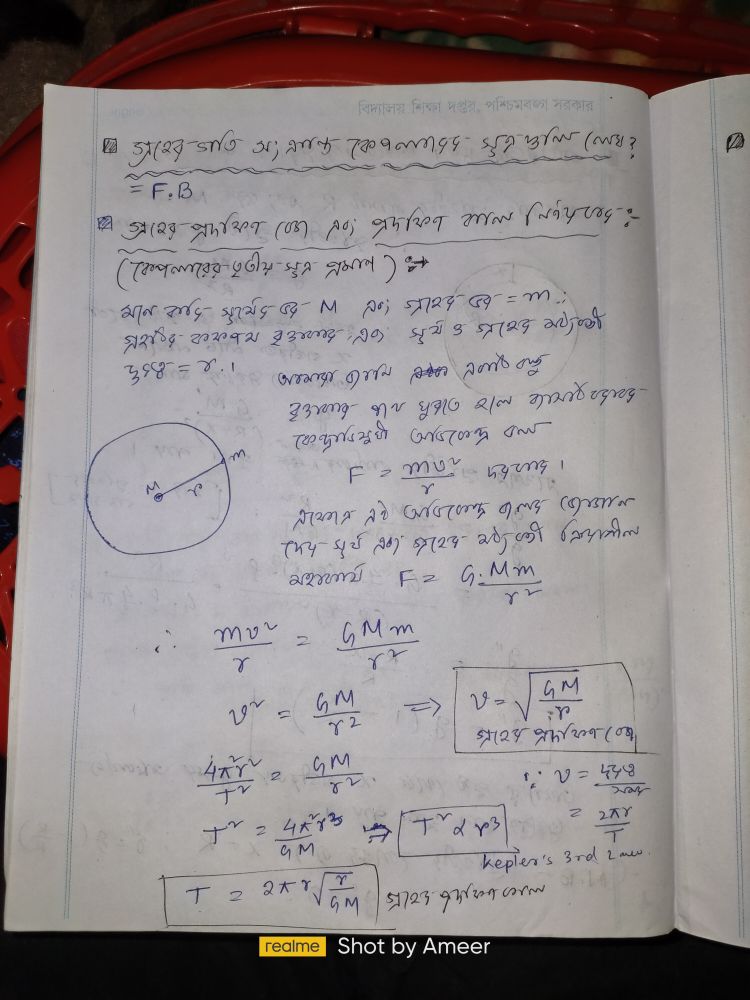 বিদ্যালয় শিক্ষা দপ্তর, পশ্চিমবঙ্গ সরকার
গ্রহের গতি সংক্রান্ত কেপলারের সূত্র গুলি লেখ?
= F.B
গ্রহের প্রদক্ষিণ বেগ এবং প্রদক্ষিণ কাল নির্ণয় :-
(কেপলারের তৃতীয় সূত্র প্রমাণ) :→
মনে করি সূর্যের ভর M এবং গ্রহের ভর = m
গ্রহটির কক্ষপথ বৃত্তাকার এবং সূর্য ও গ্রহের মধ্যবর্তী
দূরত্ব = r.।
আমরা জানি একটি বস্তু
বৃত্তাকার পথে ঘুরতে হলে
কেন্দ্রাভিমুখী অভিকেন্দ্র বল
F = mv²/r দরকার।
M r m
এক্ষেত্রে এই অভিকেন্দ্র বলের যোগান
দেয় সূর্য এবং গ্রহের মধ্যবর্তী ক্রিয়াশীল
মহাকর্ষ F = G.Mm/r²
∴ mv²/r = GMm/r²
v² = GM/r² ⇒ v = √(GM/r)
গ্রহের প্রদক্ষিণ বেগ
4π²r²/T² = GM/r²
∵ v = দূরত্ব/সময়
= 2πr/T
T² = 4π²r³/GM ⇒ T² ∝ r³
Kepler's 3rd
T = 2πr√(r/GM) গ্রহের প্রদক্ষিণ কাল
realme Shot by Ameer